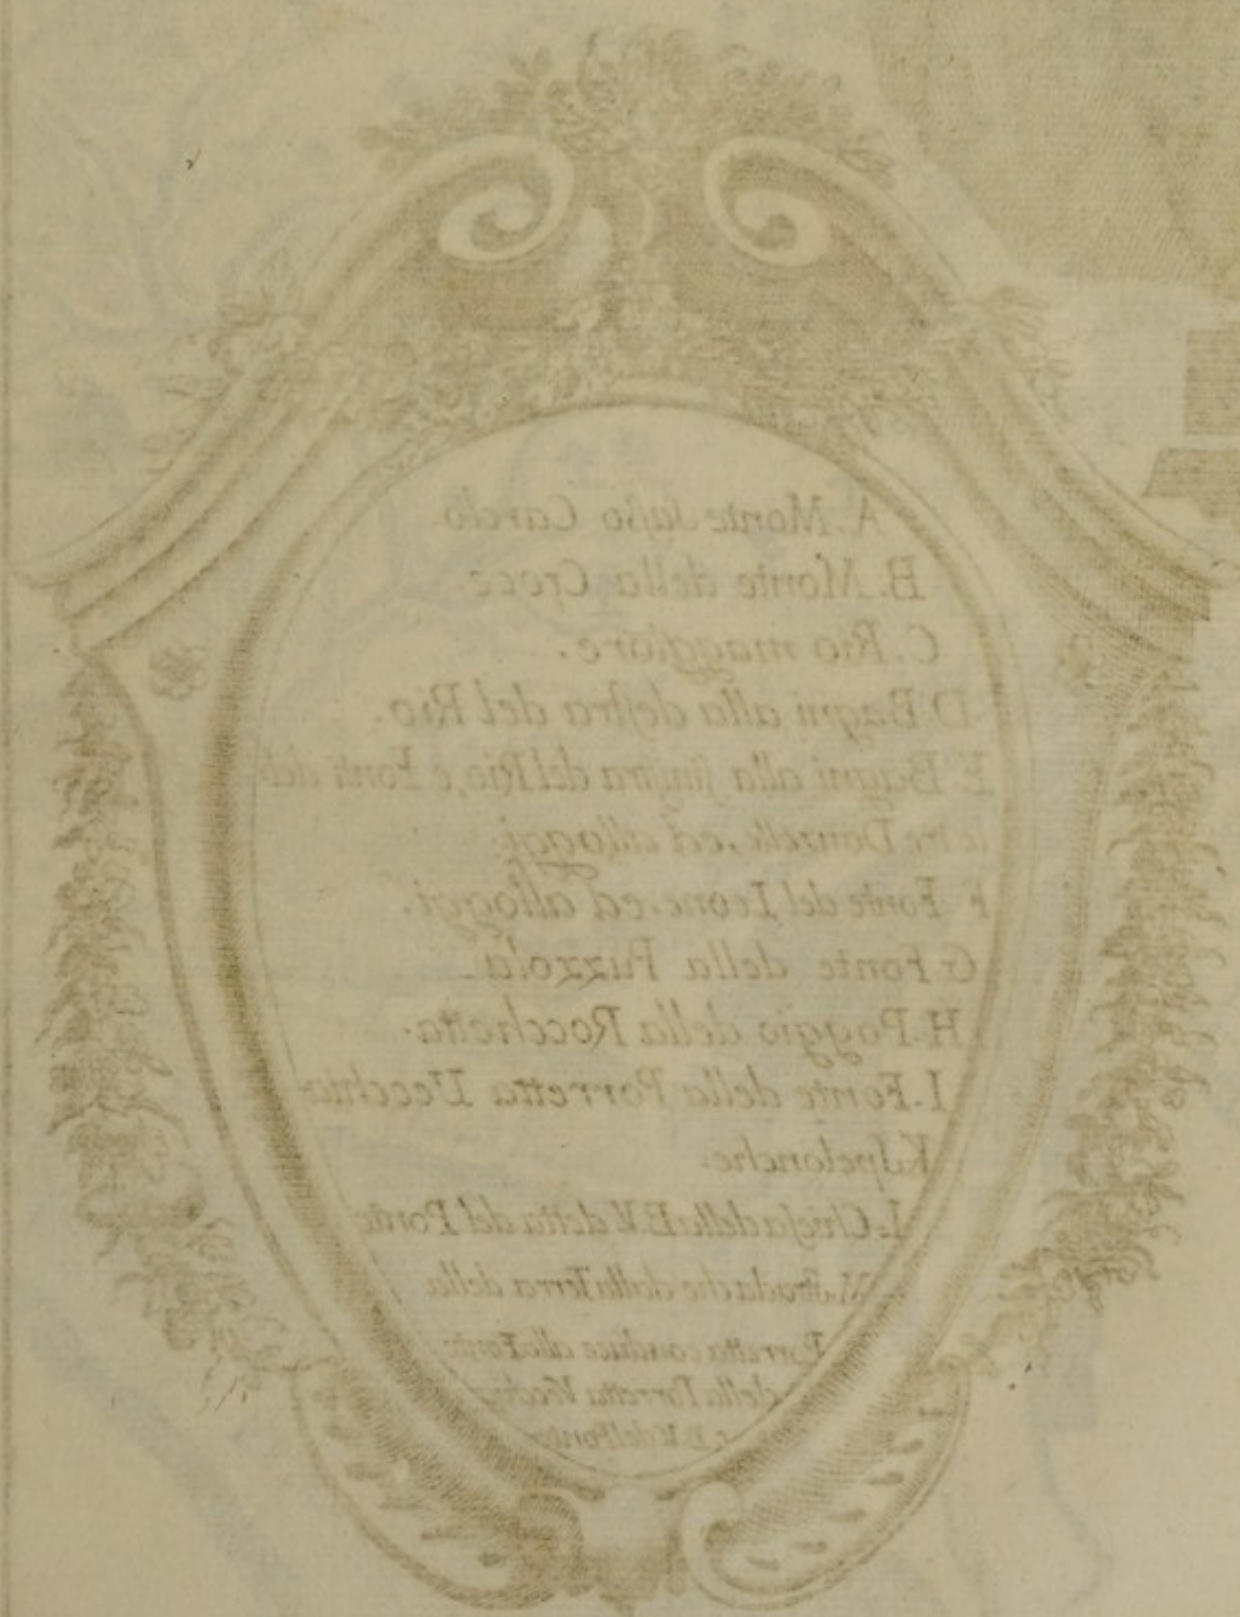 A. Monte Saſso Cardo
B. Monte della Croce
C. Rio maggiore.
D. Bagni alla deſtra del Rio.
E. Bagni alla ſiniſtra del Rio, e Fonti del
le tre Donzelle, ed alloggi.
F. Fonte del Leone, ed alloggi.
G. Fonte della Puzzola
H. Poggio della Rocchetta.
I. Fonte della Porretta Vecchia
K. Spelonche.
L. Chieſa della B.V. detta del Ponte
M. Strada che dalla Terra della
Porretta conduce alla Fonte
della Porretta Vecchia
B.V. del Ponte